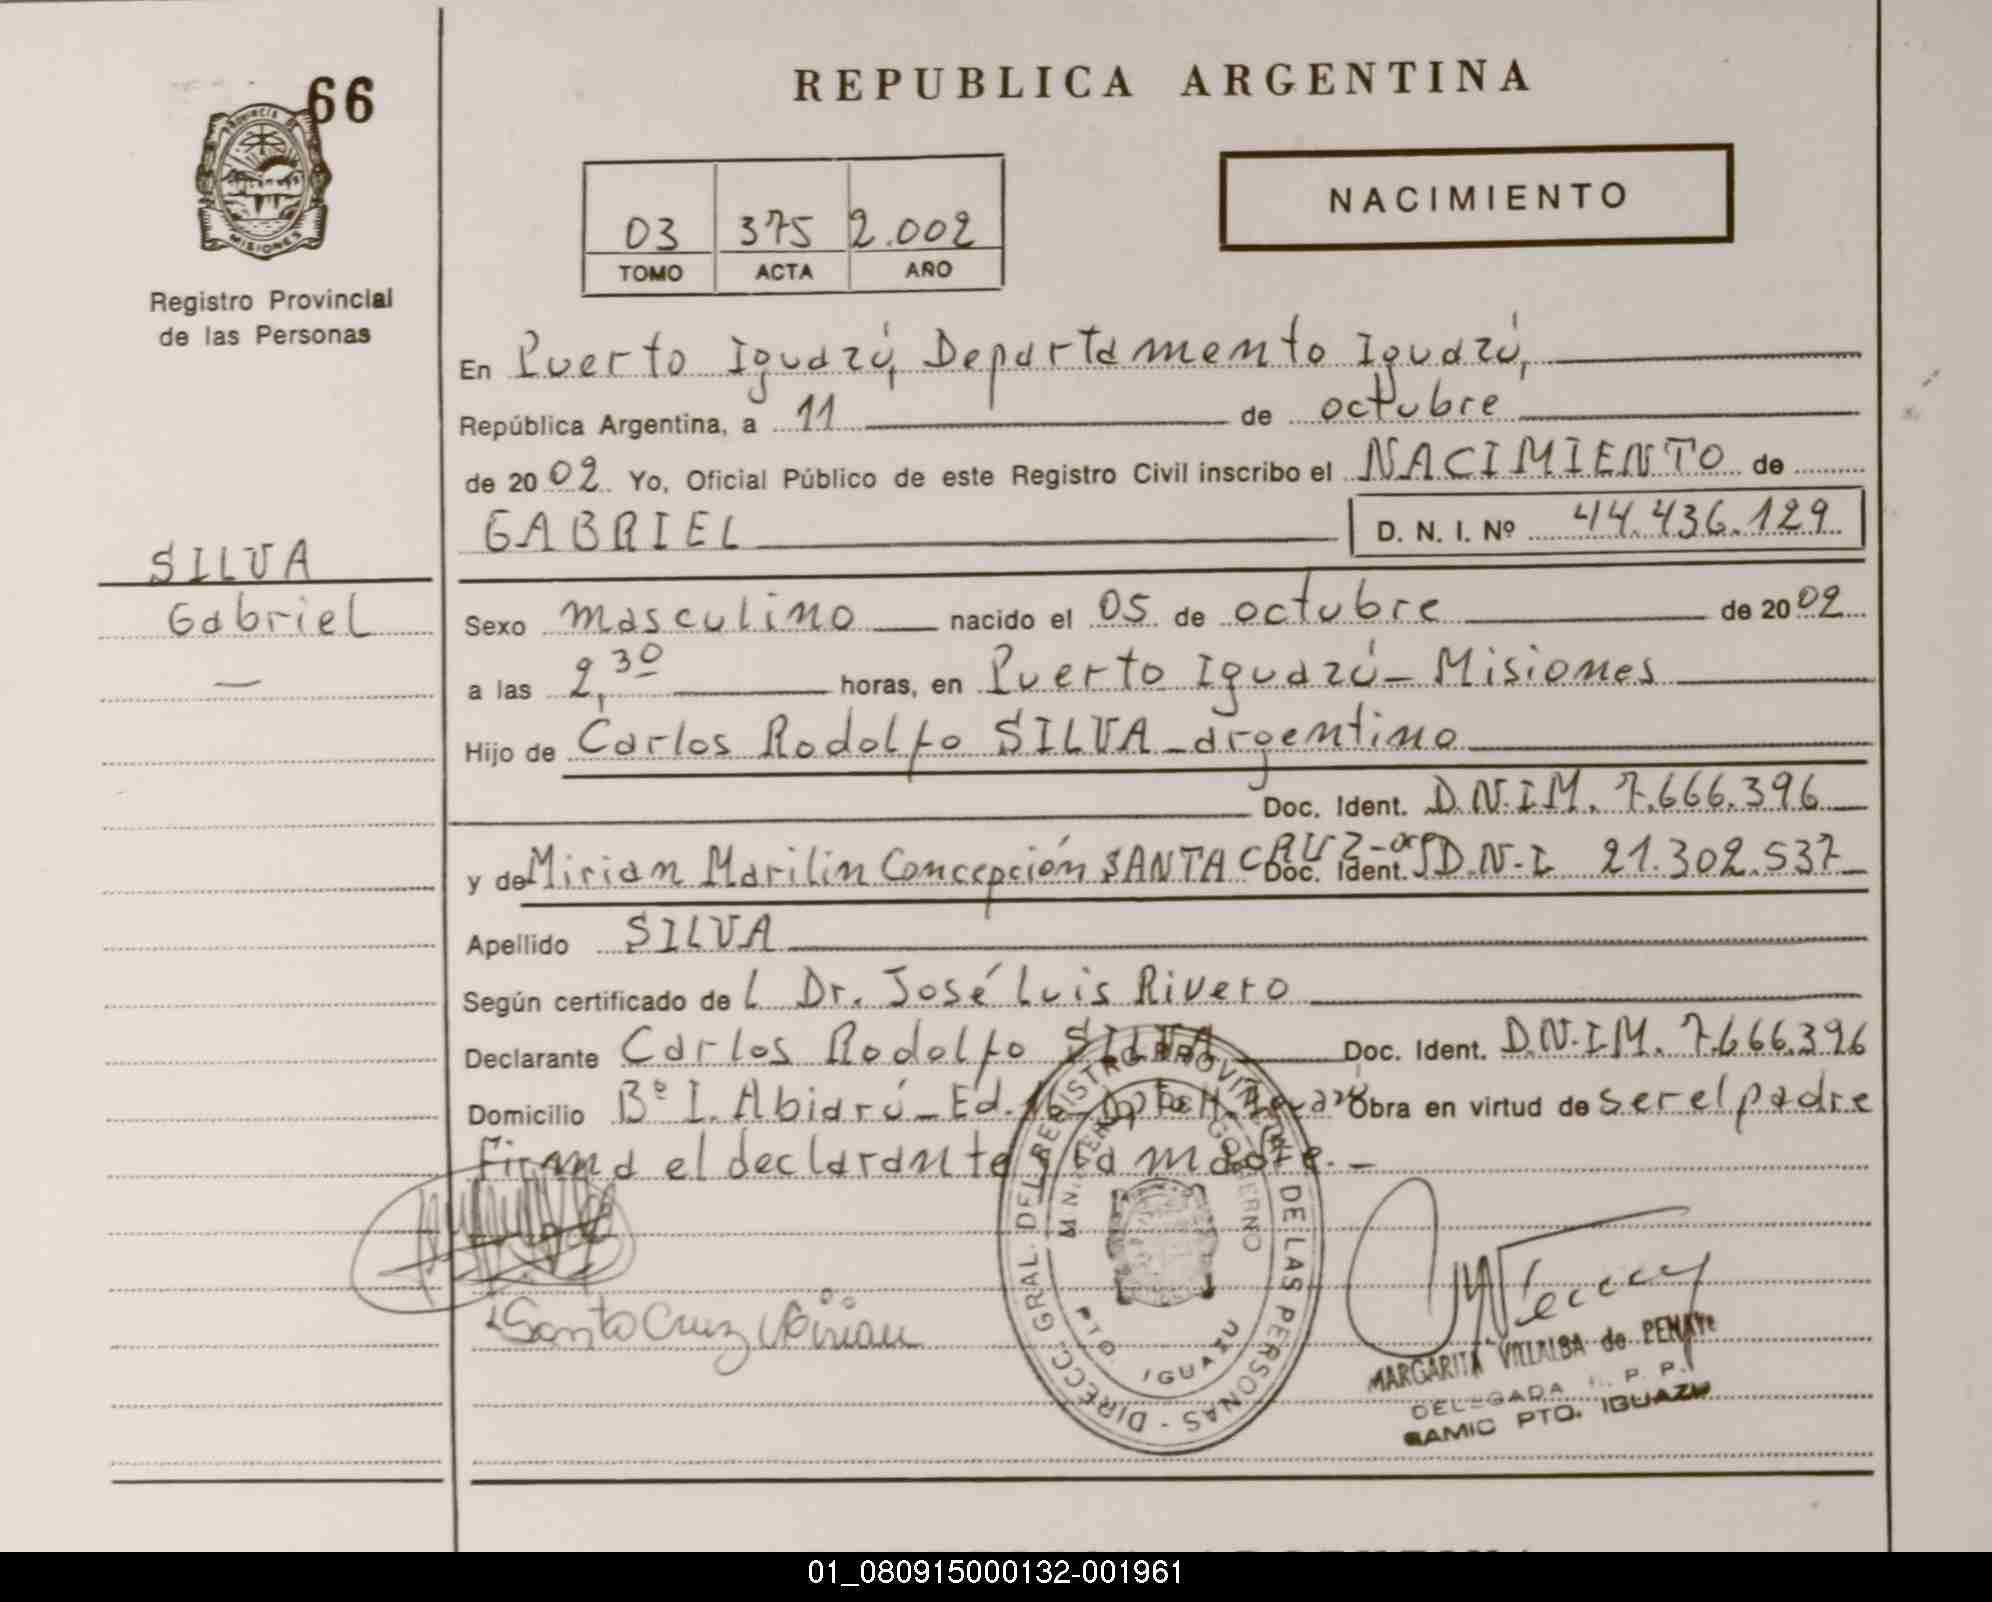 66
PROVINCIA DE
MISIONES
Registro Provincial
de las Personas
SILVA
Gabriel
—
REPUBLICA ARGENTINA
NACIMIENTO
03 375 2.002
TOMO ACTA AÑO
En Puerto Iguazú, Departamento Iguazú,
República Argentina, a 11 de octubre
de 2002. Yo, Oficial Público de este Registro Civil inscribo el NACIMIENTO de
GABRIEL D. N. I. Nº 44.436.129
Sexo masculino nacido el 05 de octubre de 2002
a las 2,30 horas, en Puerto Iguazú - Misiones
Hijo de Carlos Rodolfo SILVA - argentino
Doc. Ident. D.N.I.M. 7.666.396
y de Mirian Marilin Concepción SANTA CRUZ - arg Doc. Ident. D.N.I. 21.302.537
Apellido SILVA
Según certificado del Dr. José Luis Rivero
Declarante Carlos Rodolfo SILVA Doc. Ident. D.N.I.M. 7.666.396
Domicilio Bº I. Abiarú - Ed. Obra en virtud de ser el padre
Firma el declarante y la madre. -
Santa Cruz Mirian
DIRECC. GRAL. DEL REGISTRO PROVINCIAL DE LAS PERSONAS
GOBIERNO
PTO. IGUAZU
MARGARITA VILLALBA de PEÑATE
DELEGADA R. P. P.
SAMIC PTO. IGUAZU
01_080915000132-001961